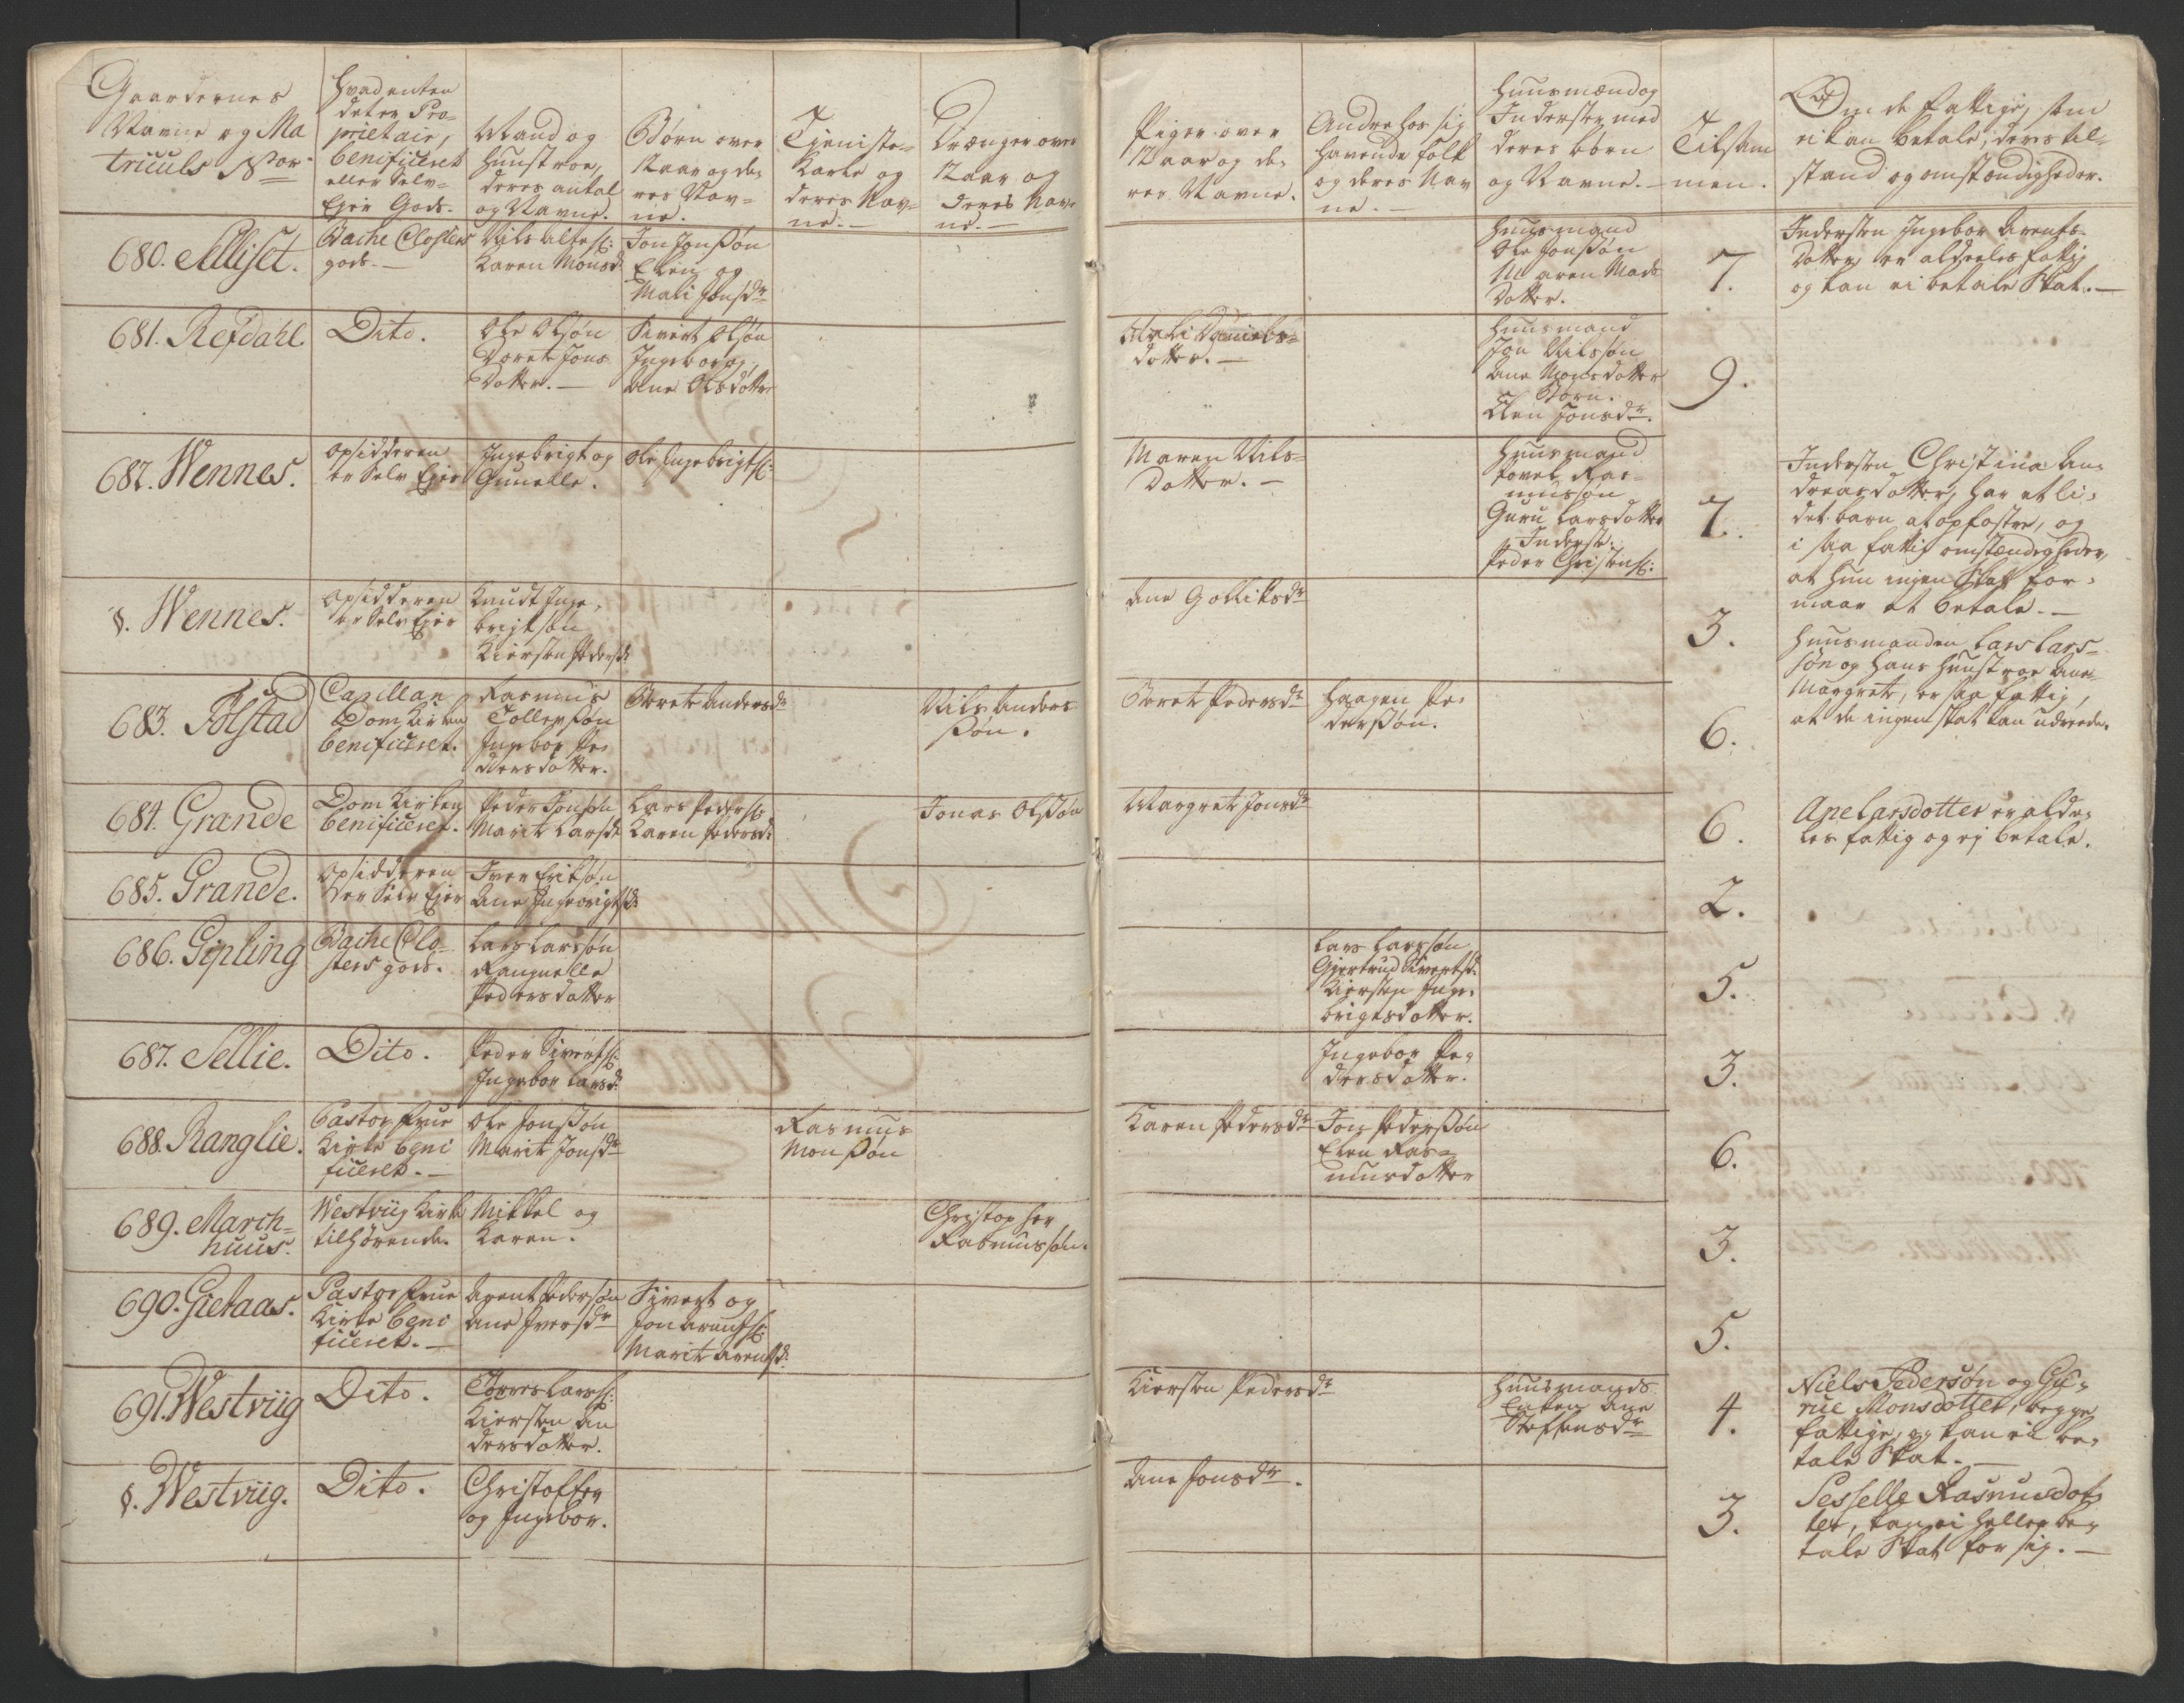 Gaardernes
Navne og Ma
triculs No:
Hvad enten
det er Pro-
prietair,
benificeret
eller Selv-
Ejer Gods.
Mand og
Hunstroe,
deres antal
og Navne.
Børn over
12 aar og de-
res Nav-
ne.
Tieniste-
Karle og
deres Nav-
ne.
Drænger over
12 aar og
deres Nav-
ne.
Piger over
12 aar og de-
res Navne.
Andre hos sig
havende folk
og deres Nav
ne.
Huusmænd og
Inderster med
deres børn
og Navne.
Tilsam
men.
Om de fattige, som
ei kan betale, deres til-
stand og omstændigheder.
680. Melliset.
Bache Closters
gods.
Nils Alfes:
Karen Monsd
Jon Jonsøn
Elen og
Mali Jonsdr
Huusmand
Ole Jonsøn
Maren Mads
Dotter.
7.
Indersten Ingebor Arents-
Datter er aldeeles fattig
og kan ei betale Skat.
681. Refdahl.
Dito.
Ole Olsøn
Doret Jons
Dotter.
Sivert Olsøn
Ingebor og
Ane Olsdotter
Mali Daniels-
dotter.
Huusmand
Jon Nilsøn
Ane Monsdotter
Børn.
Elen Jonsdr.
9.
682. Wennes.
Opsidderen
er Selv Ejer
Ingebrigt og
Gunelle.
Ole Ingebrigts:
Maren Nils-
Dotter.
Huusmand
Povel Ras-
musøn
Guru Larsdotter
Inderste.
Peder Christens:
7.
Indersten Christina An-
dreasdotter, har et li-
det barn at opfostre, og
i saa fattig omstændigheder,
at hun ingen Skat for-
maar at betale.
§. Wennes.
Opsidderen
er Selv Ejer
Knudt Inge-
brigtsøn
Kiersten Pedersd:
Ane Golliksdr
3.
Huusmanden Lars Lars-
søn og hans Hunstroe Ane
Margrete, er saa fattig,
at de ingen skat kan udreede.
683. Folstad
Capillan
Dom Kirken
benificeret.
Rasmus
Tollefsøn
Ingebor Pe-
dersdotter.
Beret Andersdr
Nils Anders
søn.
Beret Pedersdr
Haagen Pe-
dersøn.
6.
684. Grande
Dom Kirken
benificeret.
Peder Jonsøn
Marit Larsdr
Lars Peders:
Karen Pedersd:
Jonas Olsøn
Margret Jonsdr
6.
Ane Larsdotter er alde-
les fattig og ej betale.
685. Grande.
Opsidderen
er Selv Ejer
Iver Eriksøn
Ane Ingebrigtsd:
2.
686. Gipling
Bache Clo-
sters gods.
Lars Larsøn
Rangnelle
Pedersdotter
Lars Larsøn
Gjertrud Sivertsd.
Kiersten Inge-
brigtsdotter.
5.
687. Sellie.
Dito.
Peder Siverts:
Ingebor Larsd
Ingebor Pe-
dersdotter.
3.
688. Ranglie.
Pastor Frue
Kirke beni
ficeret.
Ole Jonsøn
Marit Jonsdr
Rasmus
Monsøn
Karen Pedersdr
Jon Pedersøn
Elen Ras-
musdotter
6.
689. March-
huus.
Westviig Kirke
tilhørende.
Mikkel og
Karen.
Christopher
Rasmussøn.
3.
690. Gietaas.
Pastor Frue
Kirke beni
ficeret.
Arent Pedersøn
Ane Iversdr
Sivert og
Jon Arents:
Marit Arentsd:
5.
691. Westviig
Dito.
Torres Lars:
Kiersten An
dersdotter.
Kiersten Pedersdr
Huusmands
Enken Ane
Steffensdr
4.
Niels Pedersøn og Gu-
rue Monsdotter, begge
fattige, og kan ei be-
tale Skat.
§. Westviig.
Dito.
Christoffer
og Ingebor.
Ane Jonsdr.
3.
Sesselle Rasmusdot-
ter, kan ei heller be-
tale Skat for sig.